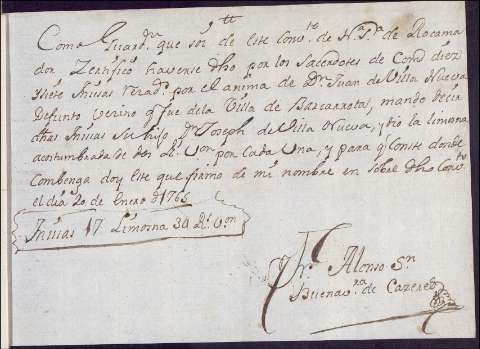 Como Guardn. que soi de este Convto. de Na. Sa. de Rocama
dor Zertifico haverse dho por los Sacerdotes de Convo diez
y siete Missas Rezads. por el anima de Dn. Juan de Villa Nueva
defunto vezino q fue de la Villa de Barcarrota, mando decir
dhas Missas Su hijo Dn. Joseph de Villa Nueva, y dio la limosna
acostumbrada de dos Rs. Von por Cada Una, y para q Conste donde
Combenga doy este que firmo de mi nombre en sobre dho Convto
el dia 20 de Enero d 1765
Missas 17 Limosna 34 Rs. Von
Fr. Alonso Sn
Buenavra. de Cazeres